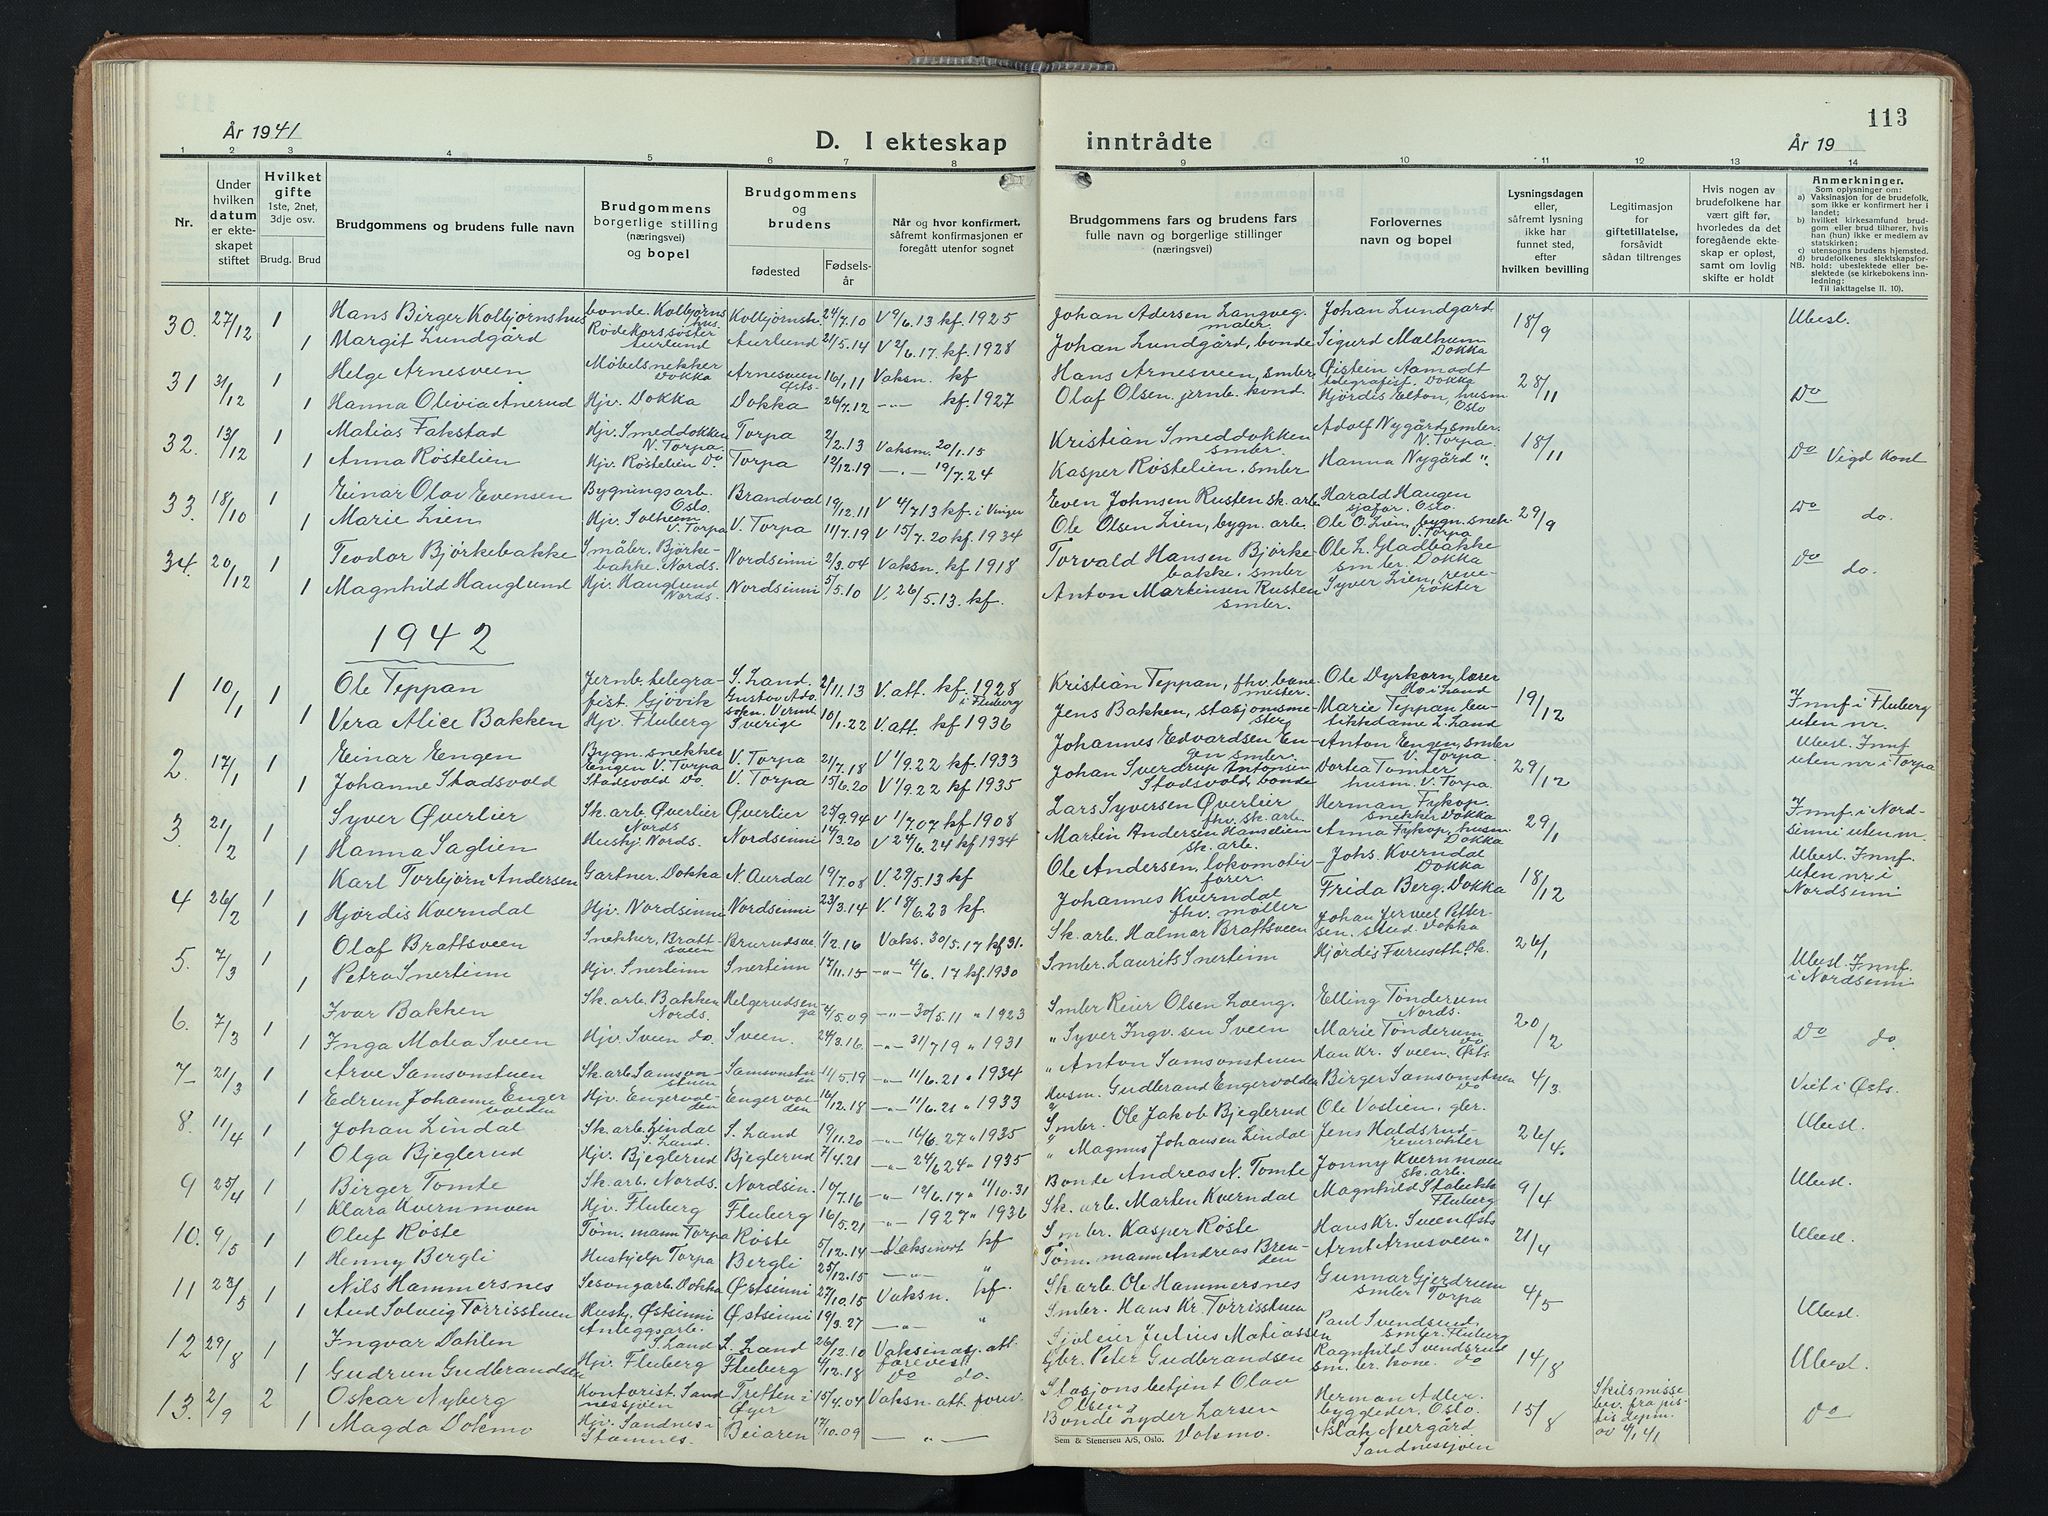 113
År 1941
D. I ekteskap inntrådte
År 19
1 2 3 4 5 6 7 8 9 10 11 12 13 14
Nr.
Under hvilken datum er ekteskapet stiftet
Hvilket gifte 1ste, 2net, 3dje osv.
Brudg. Brud
Brudgommens og brudens fulle navn
Brudgommens borgerlige stilling (næringsvei) og bopel
Brudgommens og brudens
fødested
Fødselsår
Når og hvor konfirmert, såfremt konfirmasjonen er foregått utenfor sognet
Brudgommens fars og brudens fars fulle navn og borgerlige stillinger (næringsvei)
Forlovernes navn og bopel
Lysningsdagen eller, såfremt lysning ikke har funnet sted, efter hvilken bevilling
Legitimasjon for giftetillatelse, forsåvidt sådan tiltrenges
Hvis nogen av brudefolkene har vært gift før, hvorledes da det foregående ekteskap er opløst, samt om lovlig skifte er holdt
Anmerkninger.
Som oplysninger om:
a) Vaksinasjon for de brudefolk, som ikke er konfirmert her i landet;
b) hvilket kirkesamfund brudgom eller brud tilhører, hvis han (hun) ikke er medlem av statskirken;
c) utensogns brudens hjemsted.
d) brudefolkenes slektskapsforhold: ubeslektede eller beslektede (se kirkebokens innledning:
NB.
Til Iakttagelse II. 10).
30. 27/12 1 Hans Birger Kolbjørnshus bonde. Kolbjørnshus. Kolbjørnsh. 24/7.10 V 9/6.13 kf. 1925 Johan Adersen Langveg. maler. Johan Lundgård 18/9 Ubesl.
1 Margit Lundgård Rødekorssøster Aurlund Aurlund 21/5.14 V 2/6.17. kf. 1928 Johan Lundgård, bonde Sigurd Mælhum Dokka
31 31/12 1 Helge Arnesveen Møbelsnekker Dokka Arnesveen Østs. 16/1.11 Vaksn. kf Hans Arnesveen, smbr. Øistein Aamodt telegrafist. Dokka 28/11 Do
1 Hanna Olivia Anerud Hjv. Dokka Dokka 26/7.12 -"- kf. 1927 Olaf Olsen. jernb. kond. Hjørdis Elton, husm Oslo
32. 13/12 1 Matias Fakstad Hjv. Smeddokken N. Torpa. Torpa 2/2.13 Vaksn. 20/1.15 Kristian Smeddokken smbr. Adolf Nygård, smbr. N. Torpa. 18/11 Do Vigd kont
1 Anna Røstelien Hjv. Røstelien Do Torpa 12/12.19 -"- 19/7.24 Kasper Røstelien. smbr Hanna Nygård "
33. 18/10 1 Einar Olav Evensen Bygningsarb. Oslo. Brandval 19/12.11 V 4/7.13 kf. i Vinger Even Johnsen Rusten sk. arb. Harald Haugen sjåfør. Oslo. 29/9 Do do.
1 Marie Lien Hjv. Solheim V. Torpa V. Torpa 11/7.19 V 15/7.20 kf. 1934 Ole Olsen Lien, bygn. arb. Ole O. Lien, bygn. snek. V. Torpa
34. 20/12 1 Teodor Bjørkebakke Småbr. Bjørkebakke. Nords. Nordsinni 2/3.04 Vaksn. kf 1918 Torvald Hansen Bjørkebakke. smbr Ole L. Gladbakke smbr. Dokka Do do.
1 Magnhild Hauglund Hjv. Hauglund Nords. Nordsinni 5/5.10 V. 26/5.13. kf. Anton Martinsen Rusten smbr. Syver Lien, reverøkter
1942
1 10/1 1 Ole Teppan Jernb. telegrafist. Gjøvik S. Land. 21/11.13 V. att. kf. 1928 i Fluberg Kristian Teppan, fhv. banemester. Ole Dyrkorn, lærer 19/12 Innf. i Fluberg uten nr.
1 Vera Alice Bakken Hjv. Fluberg Sverige 10/1.22 V. att. kf 1936 Jens Bakken, stasjonsmester Marie Teppan butikkdame L. Land
2. 17/1 1 Einar Engen Bygn. snekker Engen V. Torpa V. Torpa 21/7.18 V 1/9.22 kf. 1933 Johannes Edvardsen Engen smbr. Anton Engen, smbr V. Torpa. 29/12 Ubesl. Innf uten nr i Torpa
1 Johanne Stadsvold Stadsvold Do V. Torpa 15/6.20 V 1/9.22 kf 1935 Johan Sverdrup Antonsen Stadsvold, bonde Dortea Tomter husm. V. Torpa.
3. 21/2 1 Syver Øverlier Sk. arb. Øverlier Nords Øverlier 25/9.94 V 1/7.07 kf 1908 Lars Syversen Øverlier fhv. sk. arb. Herman Fykop. snekker Dokka 29/1 Innf. i Nordsinni uten nr.
1 Hanna Saglien Hushj. Nords. Nordsinni 14/3.20 V 24/6.24 kf 1934 Martin Andersen Hanselien sk. arb. Anna Fykop, husm Dokka
4 26/2 1 Karl Torbjørn Andersen Gartner. Dokka N. Aurdal 19/7.08 V. 29/5.13 kf Ole Andersen, lokomotivfører. Johs. Kverndal Dokka 18/12 Ubesl. Innf. uten nr i Nordsinni
1 Hjørdis Kverndal Hjv. Nordsinni Nordsinni 23/3.14 V. 18/6.23 kf. Johannes Kverndal fhv. møller Frida Berg, Dokka
5. 7/3 1 Olaf Brattsveen Snekker, Brattsveen 1/2.16 Vaks. 30/5.17 kf 31. Sk. arb. Halmar Brattsveen Johan Jerveel Pettersen. stud. Dokka 26/1 Ubesl. Innf. i Nordsinni
1 Petra Snertinn Hjv. Snertinn Snertinn 17/11.15 -"- 4/6.17 kf. 1930 Smbr. Laurits Snertinn Hjørdis Furuseth. Dk.
6. 7/3 1 Ivar Bakken Sk. arb. Bakken Nords. Helgerudsenga 4/5.09 -"- 30/5.11 " 1923 Smbr Reier Olsen Loeng. Elling Tønderum Nords. 20/2 Do do
1 Inga Matea Sveen Hjv. Sveen do. Sveen. 24/3.16. -"- 31/7.19 " 1931 " Syver Ingv. sen Sveen Marie Tønderum do
7- 21/3 1 Arve Samsonstuen Sk. arb. Samsonstuen Samsonstuen 11/5.19 -"- 11/6.21 " 1934 " Anton Samsonstuen Han Kr. Sveen. Østs. 4/3 Viet i Østs.
1 Edrun Johanne Engervolden Hjv. Engervolden Engervolden 16/12.18 -"- 11/6.21 " 1933 Husm. Gudbrand Engervolden Birger Samsonstuen Do
8. 11/4 1 Johan Lindal Sk. arb. Lindal S. Land. S. Land 19/11.20 -"- 16/6.27 " 1935 Smbr. Ole Jakob Bjeglerud Ole Vostien, gbr. 26/4. Ubesl.
1 Olga Bjeglerud Hjv. Bjeglerud Bjeglerud 7/4.21 -"- 24/6 24 " 1935 " Magnus Johansen Lindal Jens Haldsrud reverøkter
9 25/4 1 Birger Tomte Sk. arb. Nords. Nordsin. 10/7.16 -"- 12/6.17 " 11/10.31 Bonde Andreas N. Tomte Jonny Kvernmoen sk. arb. 9/4 Ubesl.
1 Klara Kvernmoen Hjv. Fluberg Fluberg 16/5.21 -"- 1927 " 1936 Sk. arb. Marten Kverndal Magnhild Stabekk Fluberg
10. 9/5 1 Oluf Røste Tøm. mann Torpa Røste 5/12.14 Vaksinert kf Smbr. Kasper Røste Hans Kr. Sveen Østs 21/4 Ubesl.
1 Henny Bergli Hushjelp Torpa Bergli 25/12.15 -"- " Tøm. mann Andreas Brenden Arnt Arnesveen "
11 23/5 1 Nils Hammersnes Sesongarb. Dokka Østsinni 27/10.15 Vaksn. kf. Sk arb. Ole Hammersnes Gunnar Gjerdrum smbr Torpa 4/5 Ubesl.
1 Aud Solveig Torrisstuen Hushj. Østsinni Østsinni 19/3.27 -"- " Smbr. Hans Kr. Torrisstuen Paul Svendsrud, smbr. Fluberg
12 29/8 1 Ingvar Dahlen Anleggsarb. S. Land S. Land 26/12.10 Vaksinasj. att. forevist Sjøleier Julius Matiassen Ragnhild Svendsrud sm. br. kone. do 14/8 Ubesl.
1 Gudrun Gudbrandsen Hjv. Fluberg Fluberg 4/12.18 Do do. Gbr. Peter Gudbrandsen
13. 2/9 2 Oskar Nyberg Kontorist. Sandnessjøen Tretten i Øyer 15/4.04 Vaksn. att. forev. Stasjonsbetjent Olav Olsen Herman Adler. byggleder. Oslo. 15/8 Skilsmissebev. fra justis depm. av 4/1 41 Do
1 Magda Dolmo Hjv. Sandnes i Stamnes. Beiaren 17/10.09 -"- Bonde Lyder Larsen Dolsmo. Aslak Neergård Sandnessjøen
Sem & Stenersen A/S, Oslo.